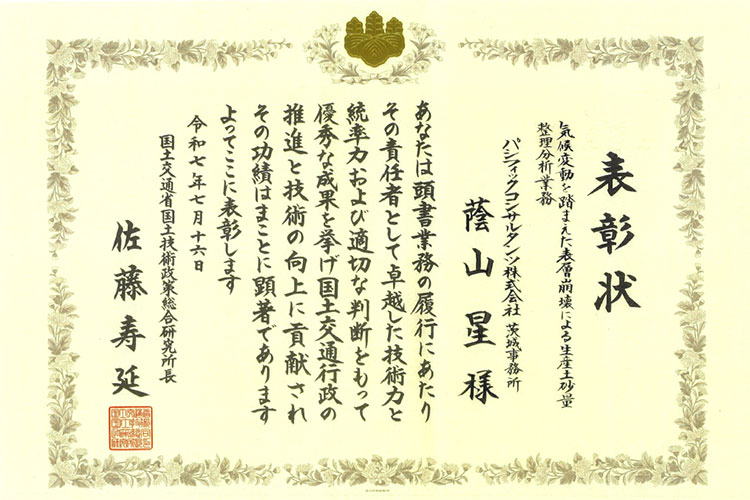 表彰状
気候変動を踏まえた表層崩壊による生産土砂量
整理分析業務
パシフィックコンサルタンツ株式会社 茨城事務所
蔭山星様
あなたは頭書業務の履行にあたり
その責任者として卓越した技術力と
統率力および適切な判断をもって
優秀な成果を挙げ国土交通行政の
推進と技術の向上に貢献され
その功績はまことに顕著であります
よってここに表彰します
令和七年七月十六日
国土交通省国土技術政策総合研究所長
佐藤寿延